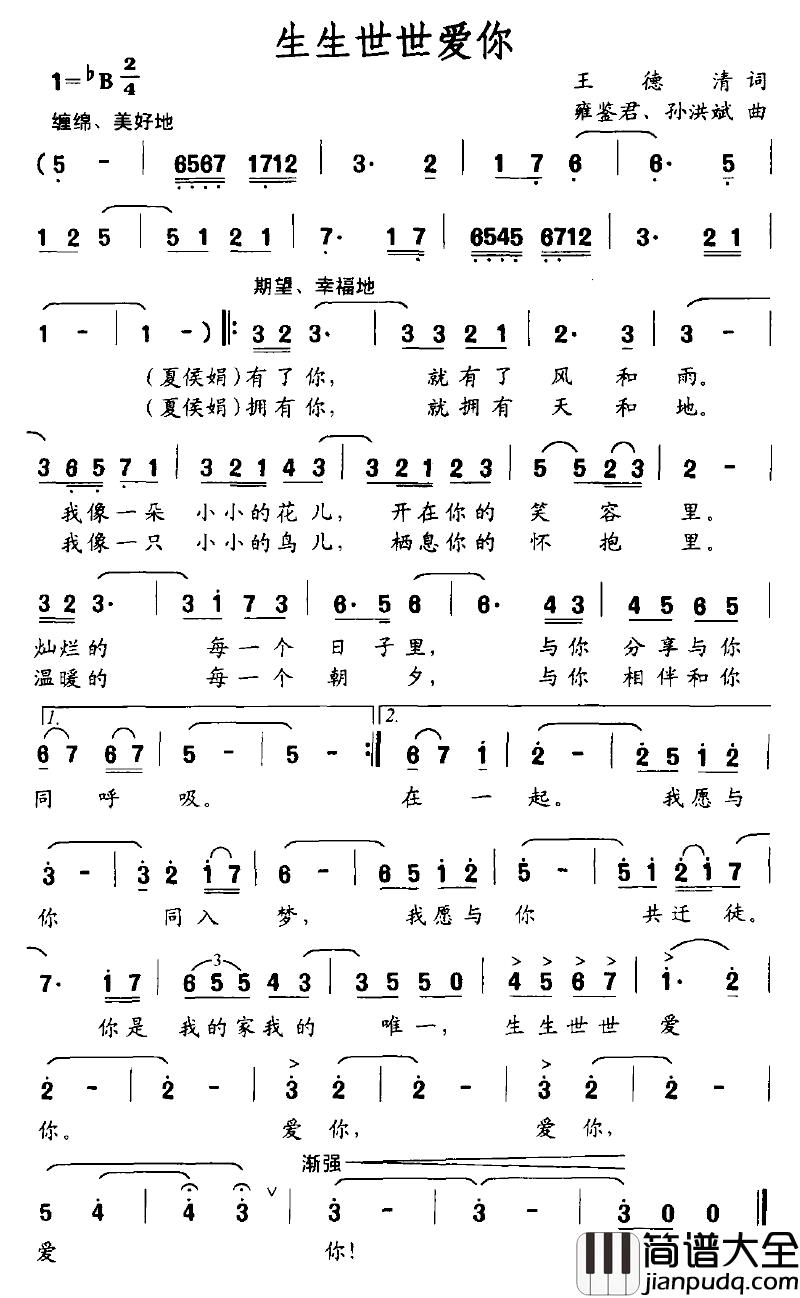 生生世世爱你
1=♭B 2/4
王德清词
缠绵、美好地
雍鉴君、孙洪斌 曲
(5 - | 6567 1712 | 3· 2 | 1 7 6 | 6· 5 |
1 2 5 | 5 1 2 1 | 7· 1 7 | 6545 6712 | 3· 2 1 |
期望、幸福地
1 - | 1 - ) |: 3 2 3· | 3 3 2 1 | 2· 3 | 3 - |
(夏侯娟)有了你, 就有了 风 和 雨。
(夏侯娟)拥有你, 就拥有 天 和 地。
3 6 5 7 1 | 3 2 1 4 3 | 3 2 1 2 3 | 5 5 2 3 | 2 - |
我像一朵 小小的花儿, 开在你的 笑 容 里。
我像一只 小小的鸟儿, 栖息你的 怀 抱 里。
3 2 3· | 3 i 7 3 | 6· 5 6 | 6· 4 3 | 4 5 6 5 |
灿烂的 每一个 日 子里, 与你 分享与你
温暖的 每一个 朝 夕, 与你 相伴和你
1. 2.
6 7 6 7 | 5 - | 5 - :| 6 7 i | 2 - | 2 5 i 2 |
同 呼 吸。 在 一 起。 我愿与
3 - | 3 2 i 7 | 6 - | 6 5 i 2 | 5 - | 5 i 2 i 7 |
你 同入 梦, 我愿与 你 共迁 徒。
7· i 7 | 3 6 5 5 4 3 | 3 5 5 5 0 | 4 5 6 7 | i· 2 |
你是 我的家我的 唯一, 生生世世 爱
2 - | 2 - | 3 2 | 2 - | 3 2 | 2 - |
你。 爱 你, 爱 你,
渐强
5 4 | 4 3 ∨ | 3 - | 3 - | 3 0 0 ‖
爱 你!
简谱大全
jianpudq.com